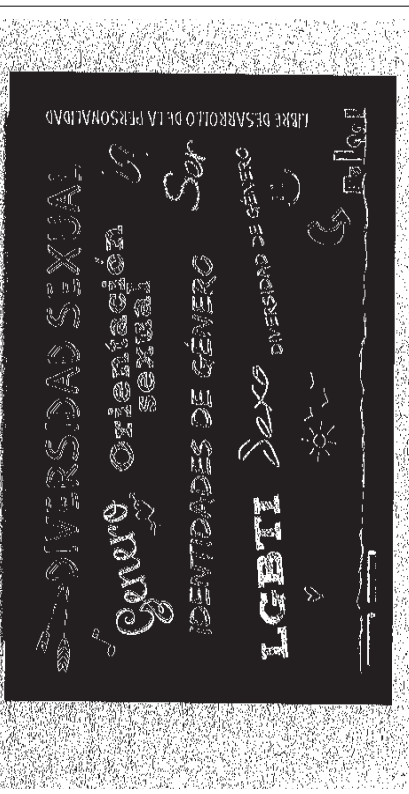 DIVERSIDAD SEXUAL
Genero Orientación
sexual
IDENTIDADES DE GÉNERO Ser
LGBTI Sexo DIVERSIDAD DE GÉNERO
LIBRE DESARROLLO DE LA PERSONALIDAD